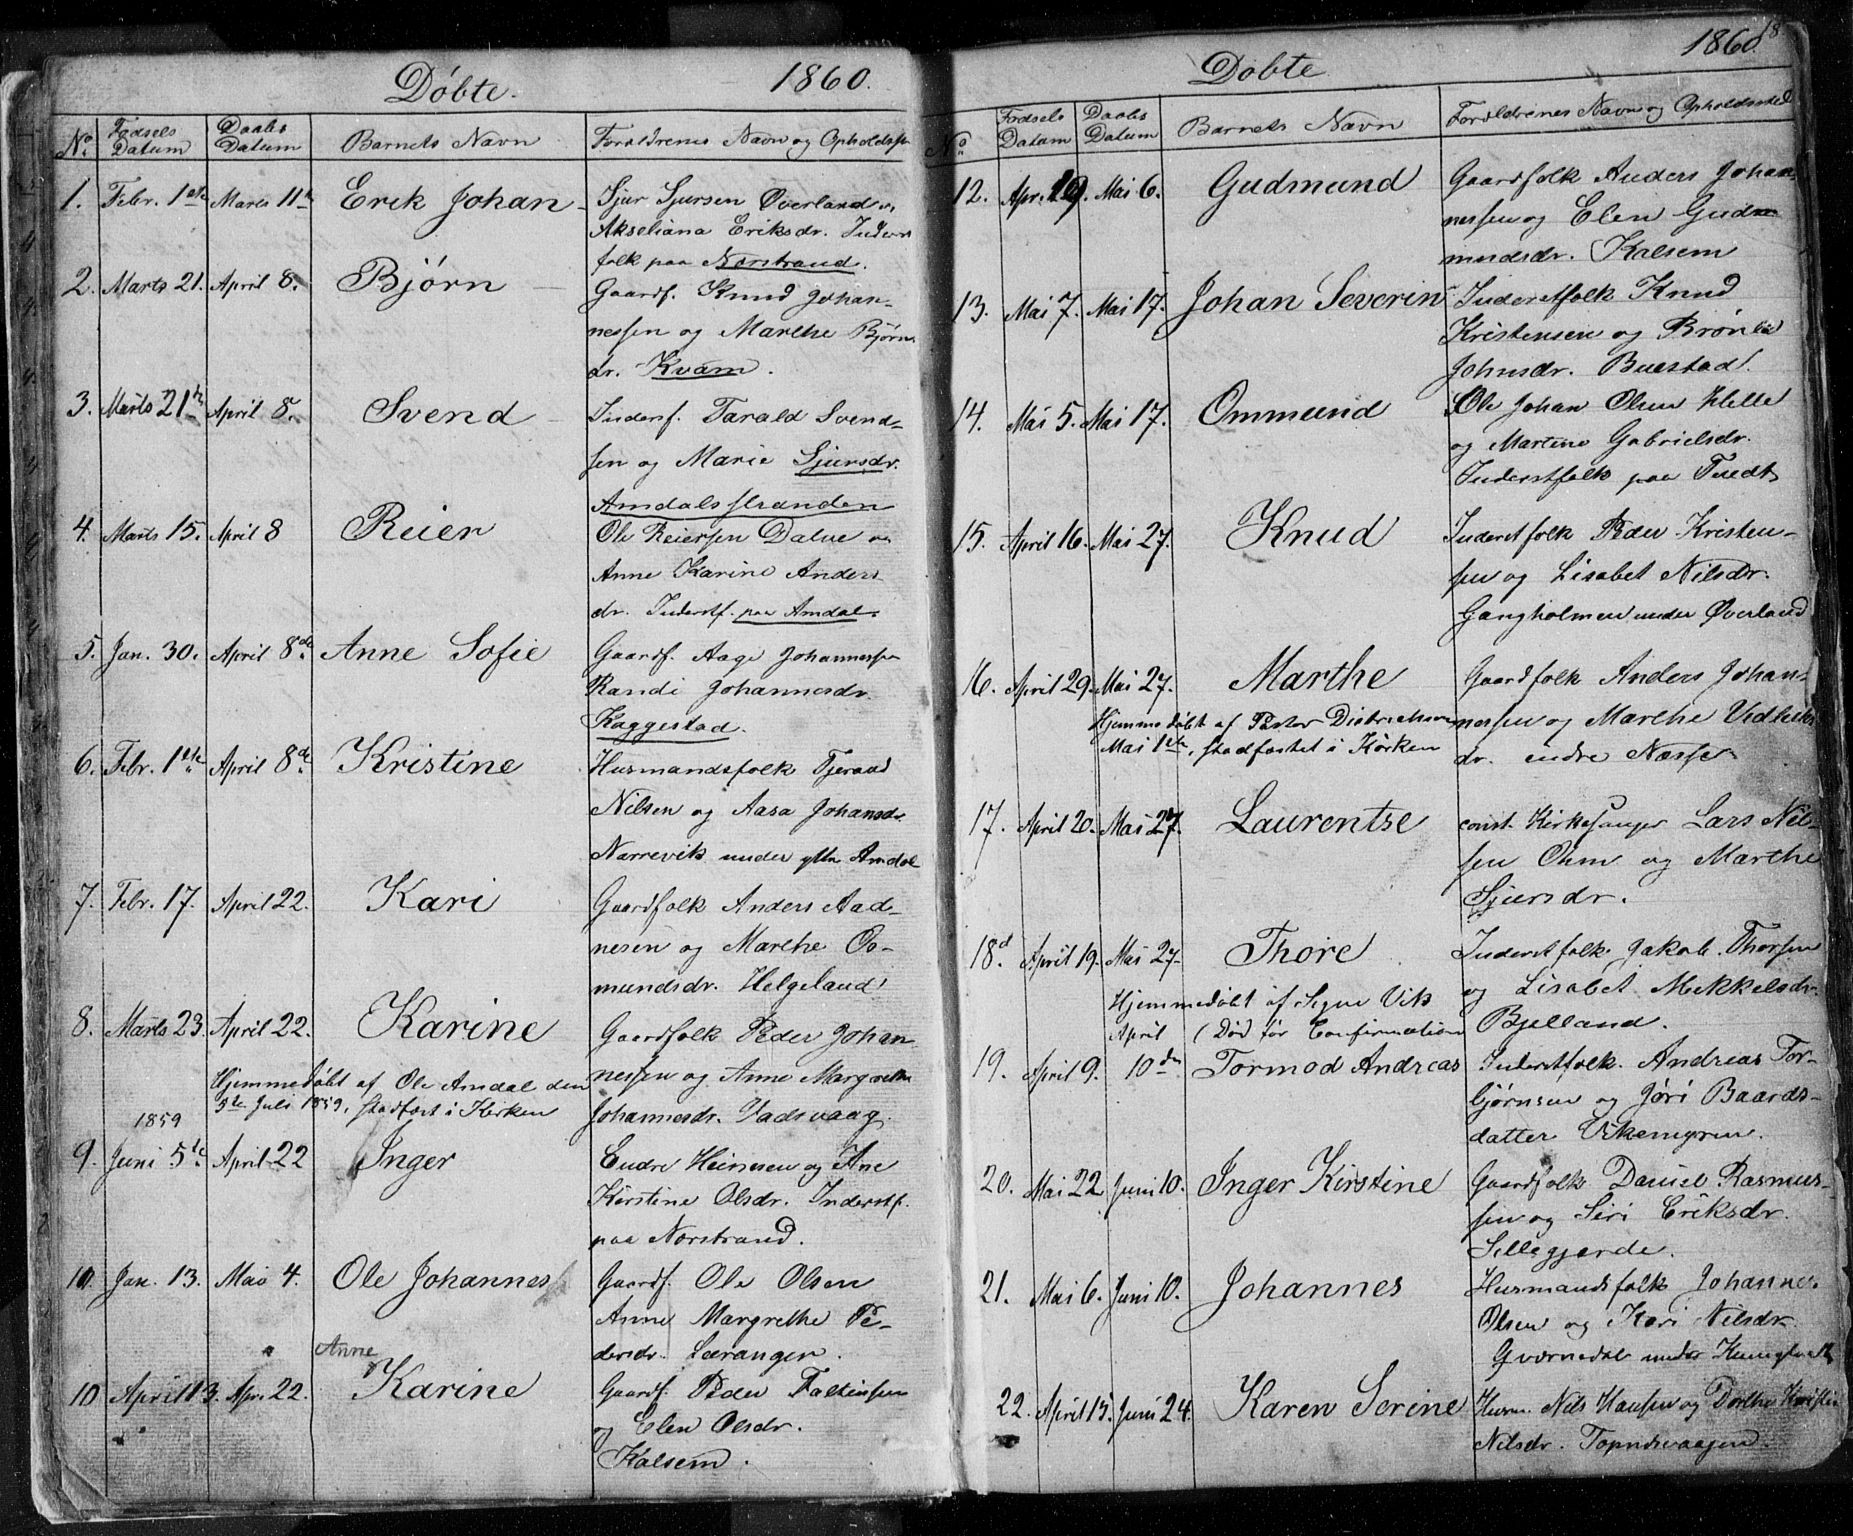 Döbte. 1860.
No. Fødsels Datum Daabs Datum Barnets Navn Forældrenes Navn og Opholdsst
1. Febr. 1ste Marts 11te Erik Johan Sjur Sjursen Øverland og
Akseliana Eriksdr. Inderst
folk paa Norstrand.
2. Marts 21. April 8. Bjørn Gaardf. Knud Johan-
nessen og Marthe Bjørns
dr. Kvam.
3. Marts 21te April 8. Svend Inderf. Tarald Svend-
sen og Marie Sjursdr.
Amdalsstranden
4. Marts 15. April 8 Reier Ole Reiersen Dalve og
Anne Karine Anders
dr. Inderstf. paa Amdal.
5. Jan. 30. April 8de Anne Sofie Gaardf. Aage Johannessen
Randi Johannesdr.
Kaggestad.
6. Febr. 1ste April 8de Kristine Husmandsfolk Tjerand
Nilsen og Aasa Johansdr
Narrevik under yttre Amdal
7. Febr. 17. April 22. Kari Gaardfolk Anders Aad-
nesen og Marthe Os-
mundsdr. Helgeland
8. Marts 23. April 22. Karine Gaardfolk Peder Johan-
nessen og Anne Margrethe
Johannesdr. Vadsvaag
Hjemmedøbt af Ole Amdal den
5te Juli 1859, stadfæst i Kirken
1859
9. Juni 5te April 22 Inger Endre Heinesen og Ane
Kirstine Olsdr. Inderstf.
paa Norstrand.
10. Jan. 13. Mai 4. Ole Johannes Gaardf. Ole Olsen
Anne Margrethe Pe-
dersdr. Læranger.
Anne
10 April 13. Apr. 22. Karine Gaardf. Peder Falkensen
og Elen Olsdr.
Kalsem.
Döbte 1860. 18
No. Fødsels Datum Daabs Datum Barnets Navn Forældrenes Navn og Opholdssted
12. Apr. 19. Mai 6. Gudmund Gaardfolk Anders Johan-
nessen og Elen Gud-
mundsdr. Kalsem
13. Mai 7. Mai 17. Johan Severin Inderstfolk Knud
Kristensen og Brønla
Johnsdr. Buestad.
14. Mai 5. Mai 17. Ommund Ole Johan Olsen Helle
og Martine Gabrielsdr.
Inderstfolk paa Tuedt
15. April 16. Mai 27. Knud Inderstfolk Peder Kristen-
sen og Lisabet Nilsdr.
Gangholmen under Øverland
16. April 29. Mai 27. Marthe Gaardfolk Anders Johan-
nessen og Marthe Vidliks
dr. indre Næsse
Hjemmedøbt af Pastor Dietrichson
Mai 1ste, stadfæstet i Kirken
17. April 20. Mai 27. Laurentse const. Kirkesanger Lars Nil-
sen Ohm og Marthe
Sjursdr.
18d April 19. Mai 27. Thore Inderstfolk Jakob Thorsen
og Lisabet Mekkelsdr.
Bjelland.
Hjemmedøbt af Signe Vik
April (Død før Confirmation
19. April 9. 10de Tormod Andreas Inderstfolk. Andreas Tor-
bjørnsen og Jøri Baards-
datter Vikemyren.
20. Mai 22 Juni 10. Inger Kirstine Gaardfolk Daniel Rasmus-
sen og Siri Eriksdr.
Sillegjerde.
21. Mai 6. Juni 10. Johannes Husmandsfolk Johannes
Olsen og Kari Nilsdr.
Qværnedal under
22. April 15. Juni 24. Karen Serine Husm. Nils Hansen og Dorthe Kirstin
Nilsdr. Topnesvaagen.